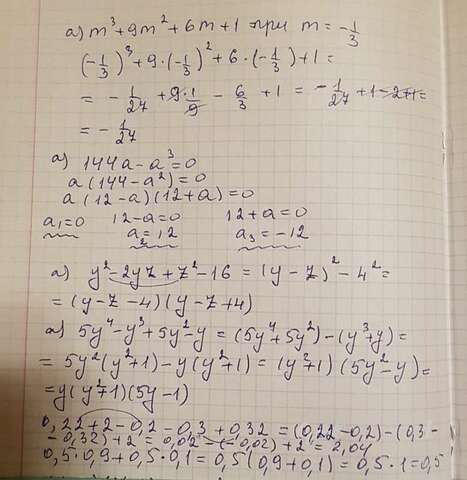 а) m³+9m²+6m+1 при m = -1/3
(-1/3)³+9·(-1/3)²+6·(-1/3)+1=
= -1/27 + 9·1/9 - 6/3 +1 = -1/27 +1-2+1=
= -1/27
а) 144a-a³=0
a(144-a²)=0
a(12-a)(12+a)=0
a₁=0 12-a=0 12+a=0
a₂=12 a₃=-12
а) y²-2yz+z²-16 = (y-z)²-4²=
=(y-z-4)(y-z+4)
а) 5y⁴-y³+5y²-y = (5y⁴+5y²)-(y³+y)=
= 5y²(y²+1)-y(y²+1)= (y²+1)(5y²-y)=
=y(y²+1)(5y-1)
0,22+2-0,2-0,3+0,32 =(0,22-0,2)-(0,3-
-0,32)+2 = 0,02-(-0,02)+2=2,04
0,5·0,9+0,5·0,1=0,5(0,9+0,1)=0,5·1=0,5